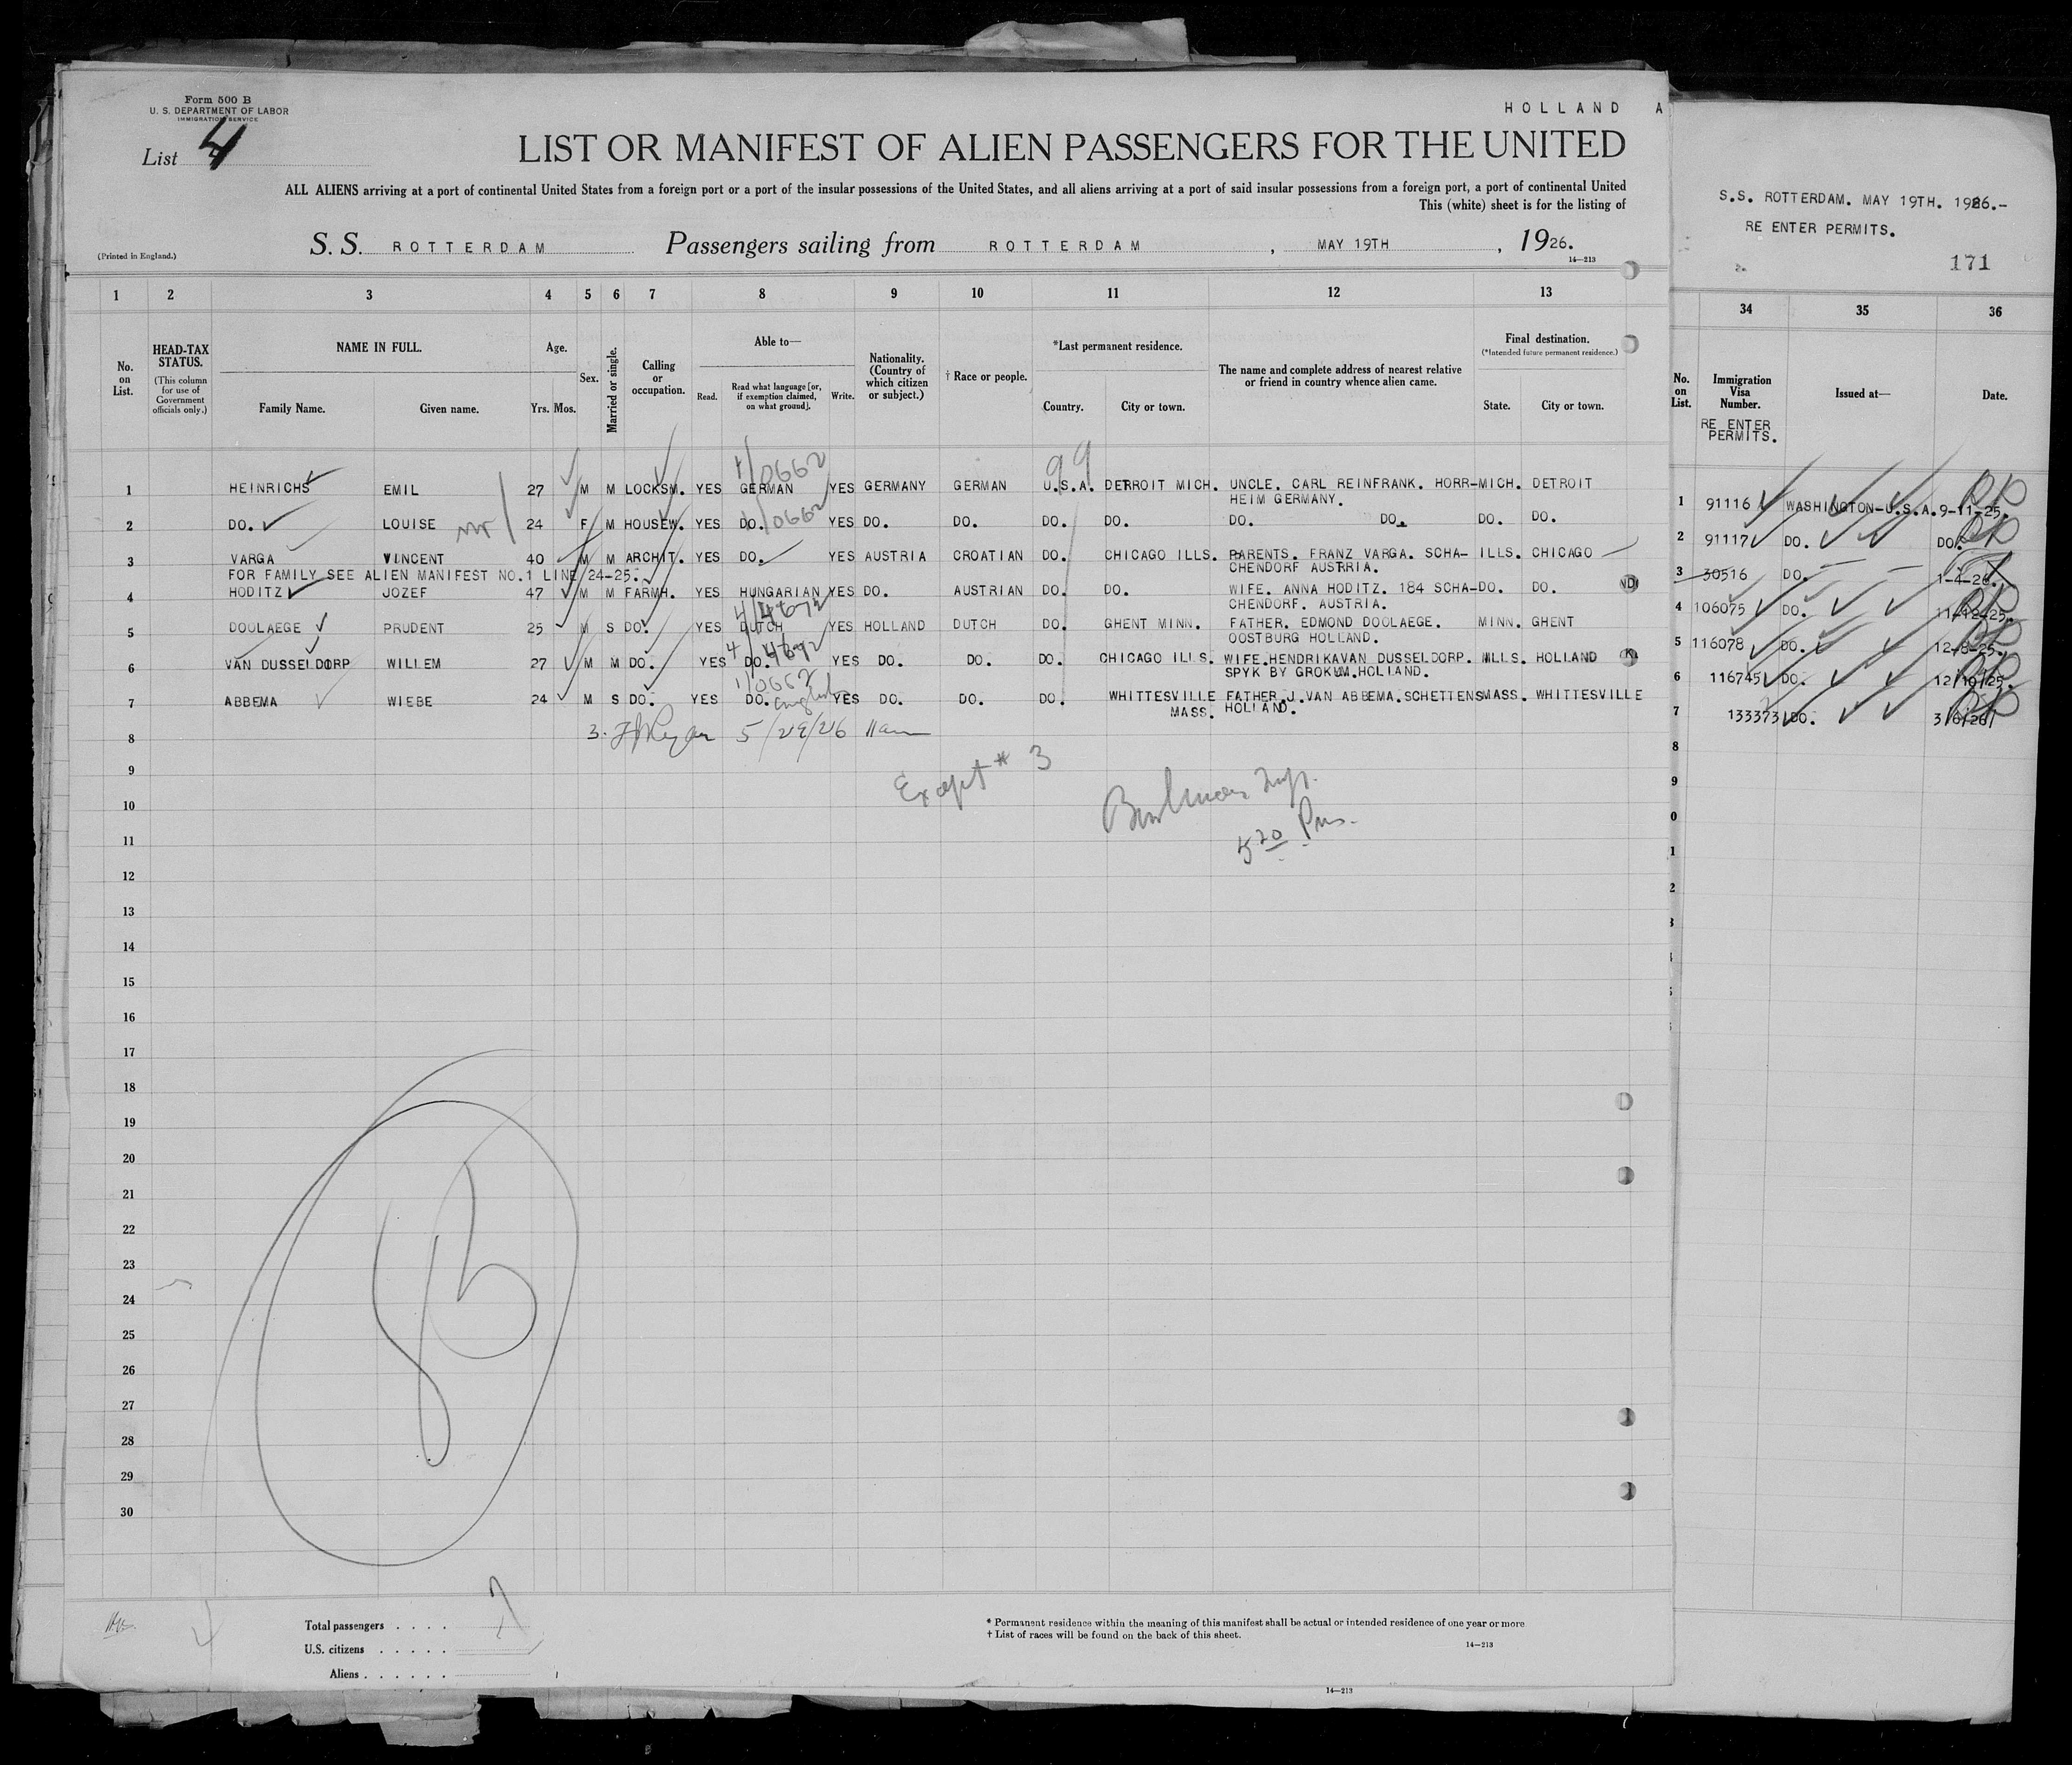 Form 500 B
U. S. DEPARTMENT OF LABOR
IMMIGRATION SERVICE
HOLLAND A
List 4
LIST OR MANIFEST OF ALIEN PASSENGERS FOR THE UNITED
ALL ALIENS arriving at a port of continental United States from a foreign port or a port of the insular possessions of the United States, and all aliens arriving at a port of said insular possessions from a foreign port, a port of continental United
This (white) sheet is for the listing of
S. S. ROTTERDAM Passengers sailing from ROTTERDAM , MAY 19TH , 1926.
(Printed in England.)
14—213
S.S. ROTTERDAM. MAY 19TH. 1926.-
RE ENTER PERMITS.
171
1 2 3 4 5 6 7 8 9 10 11 12 13 34 35 36
No. on List.
HEAD-TAX STATUS.
(This column for use of Government officials only.)
NAME IN FULL.
Family Name. Given name.
Age.
Yrs. Mos.
Sex.
Married or single.
Calling or occupation.
Able to—
Read. Read what language [or, if exemption claimed, on what ground]. Write.
Nationality. (Country of which citizen or subject.)
† Race or people.
*Last permanent residence.
Country. City or town.
The name and complete address of nearest relative or friend in country whence alien came.
Final destination.
(*Intended future permanent residence.)
State. City or town.
No. on List.
Immigration Visa Number.
RE ENTER PERMITS.
Issued at—
Date.
1/0662 99
1 HEINRICHS EMIL 27 M M LOCKSM. YES GERMAN YES GERMANY GERMAN U.S.A. DETROIT MICH. UNCLE. CARL REINFRANK. HORR-MICH. DETROIT
HEIM GERMANY.
1 91116 WASHINGTON-U.S.A. 9-11-25.
1/0662
2 DO. LOUISE 24 F M HOUSEW. YES DO. YES DO. DO. DO. DO. DO. DO. DO. DO.
2 91117 DO. DO.
3 VARGA VINCENT 40 M M ARCHIT. YES DO. YES AUSTRIA CROATIAN DO. CHICAGO ILLS. PARENTS. FRANZ VARGA. SCHA- ILLS. CHICAGO
CHENDORF AUSTRIA.
FOR FAMILY SEE ALIEN MANIFEST NO.1 LINE 24-25.
3 30516 DO. 1-4-26.
4 HODITZ JOZEF 47 M M FARMH. YES HUNGARIAN YES DO. AUSTRIAN DO. DO. WIFE. ANNA HODITZ. 184 SCHA-DO. DO.
CHENDORF. AUSTRIA.
4 106075 DO. 11-12-25.
5 DOOLAEGE PRUDENT 25 M S DO. YES DUTCH YES HOLLAND DUTCH DO. GHENT MINN. FATHER. EDMOND DOOLAEGE. MINN. GHENT
OOSTBURG HOLLAND.
5 116078 DO. 12-8-25.
6 VAN DUSSELDORP WILLEM 27 M M DO. YES DO. YES DO. DO. DO. CHICAGO ILLS. WIFE.HENDRIKAVAN DUSSELDORP. ILLS. HOLLAND
SPYK BY GROKUM.HOLLAND.
6 116745 DO. 12/10/25.
1/0662
English
7 ABBEMA WIEBE 24 M S DO. YES DO. YES DO. DO. DO. WHITTESVILLE MASS. FATHER.J.VAN ABBEMA.SCHETTENS MASS. WHITTESVILLE
HOLLAND.
7 133373 DO. 3/6/26/
8 3. 5/29/26 11am
9 Except # 3
10 Insp.
11 5 20 Pm.
12
13
14
15
16
17
18
19
20
21
22
23
24
25
26
27
28
29
30
Total passengers . . . . 7
U.S. citizens . . . . .
Aliens . . . . . .
* Permanent residence within the meaning of this manifest shall be actual or intended residence of one year or more
† List of races will be found on the back of this sheet.
14—213
14—213